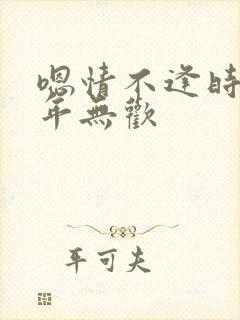 嗯情不逢時
年無歡
平可夫